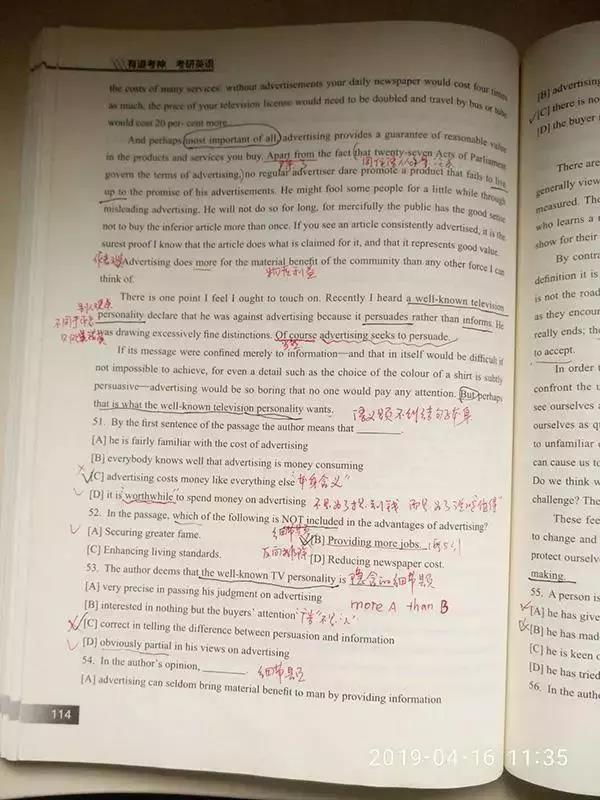 有道考神 考研英语
the costs of many services: without advertisements your daily newspaper would cost four times
as much, the price of your television license would need to be doubled and travel by bus or tube
would cost 20 per cent more.
And perhaps most important of all, advertising provides a guarantee of reasonable value
in the products and services you buy. Apart from the fact that twenty-seven Acts of Parliament
govern the terms of advertising, no regular advertiser dare promote a product that fails to live
up to the promise of his advertisements. He might fool some people for a little while through
misleading advertising. He will not do so for long, for mercifully the public has the good sense
not to buy the inferior article more than once. If you see an article consistently advertised, it is the
surest proof I know that the article does what is claimed for it, and that it represents good value.
Advertising does more for the material benefit of the community than any other force I can
think of.
物质利益
There is one point I feel I ought to touch on. Recently I heard a well-known television
personality declare that he was against advertising because it persuades rather than informs. He
was drawing excessively fine distinctions. Of course advertising seeks to persuade.
If its message were confined merely to information—and that in itself would be difficult if
not impossible to achieve, for even a detail such as the choice of the colour of a shirt is subtly
persuasive—advertising would be so boring that no one would pay any attention. But perhaps
that is what the well-known television personality wants.
51. By the first sentence of the passage the author means that
[A] he is fairly familiar with the cost of advertising
[B] everybody knows well that advertising is money consuming
[C] advertising costs money like everything else "本身含义"
[D] it is worthwhile to spend money on advertising
52. In the passage, which of the following is NOT included in the advantages of advertising?
细节题
[A] Securing greater fame. [B] Providing more jobs.
[C] Enhancing living standards. [D] Reducing newspaper cost.
53. The author deems that the well-known TV personality is
[A] very precise in passing his judgment on advertising more A than B
[B] interested in nothing but the buyers' attention
[C] correct in telling the difference between persuasion and information
[D] obviously partial in his views on advertising
54. In the author's opinion, 细节题
[A] advertising can seldom bring material benefit to man by providing information
114
[B] advertising
[C] there is no
[D] the buyer
There are
generally view
measured. The
who learns a
show for their
By contra
definition it is
is not the road
as they encour
really ends; the
to accept.
In order t
confront the u
see ourselves a
ourselves as q
to unfamiliar
can cause us to
Do we think w
challenge? The
These feel
to change and
protect ourselve
making.
55. A person is
[A] he has give
[B] he has made
[C] he is keen o
[D] he has tried
56. In the autho
2019-04-16 11:35